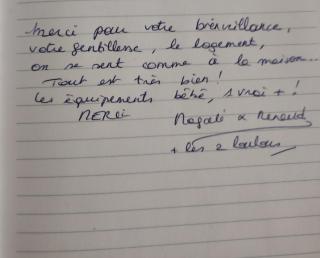 Merci pour votre bienveillance,
votre gentillesse, le logement,
on se sent comme à la maison...
Tout est très bien !
Les équipements bébé, 1 vrai + !
MERCI Magali & Renaud
+ les 2 loulous